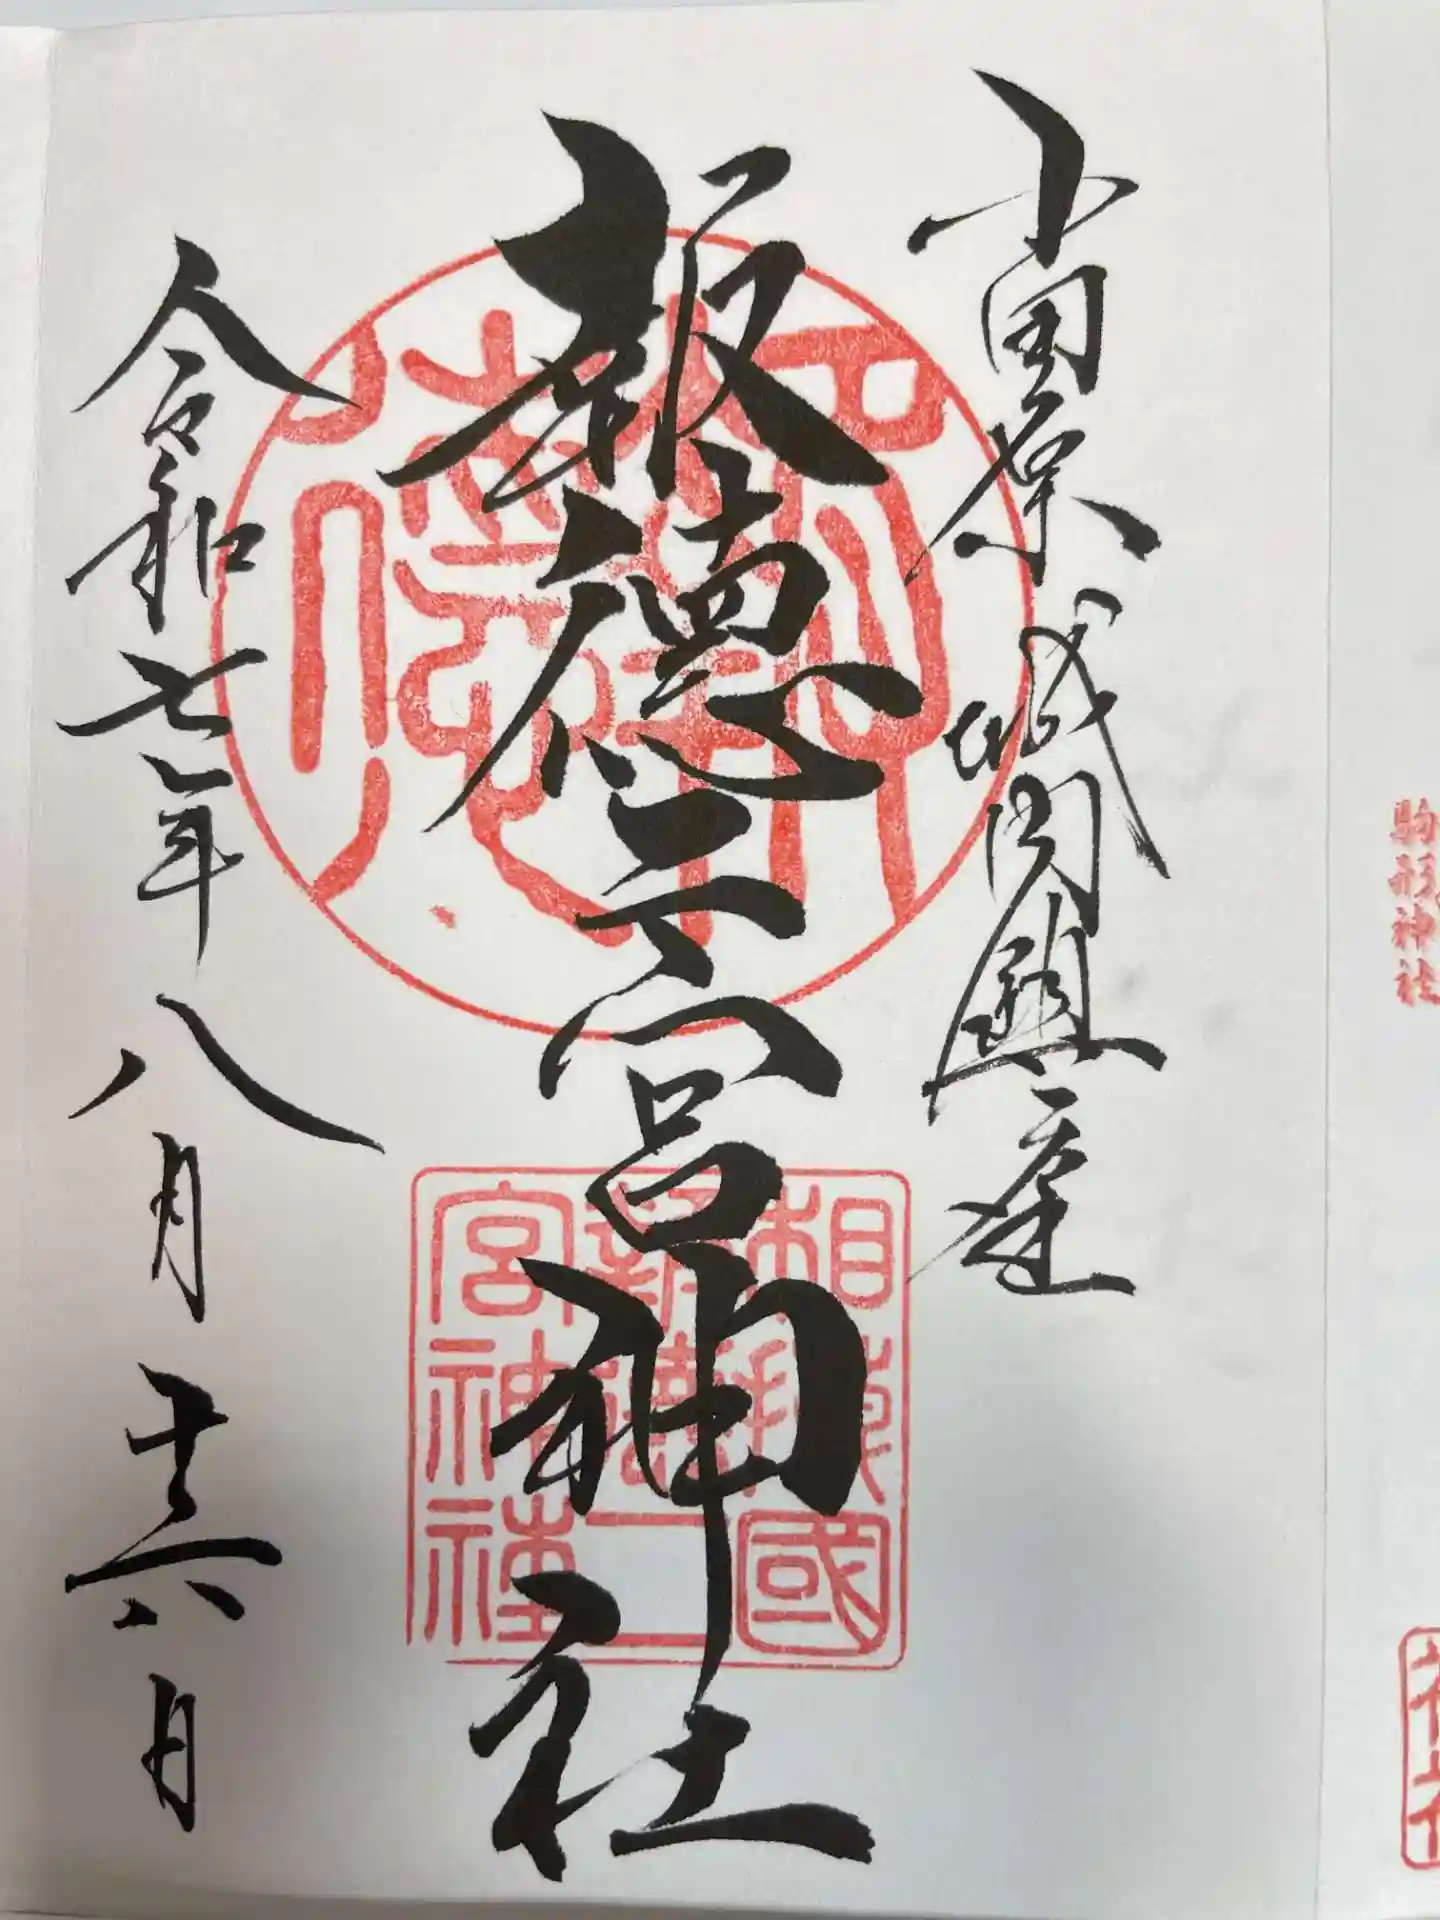 駒形神社
小田原城内鎮座
報徳二宮神社
令和七年八月十六日
報徳
相模國
報徳二
宮神社